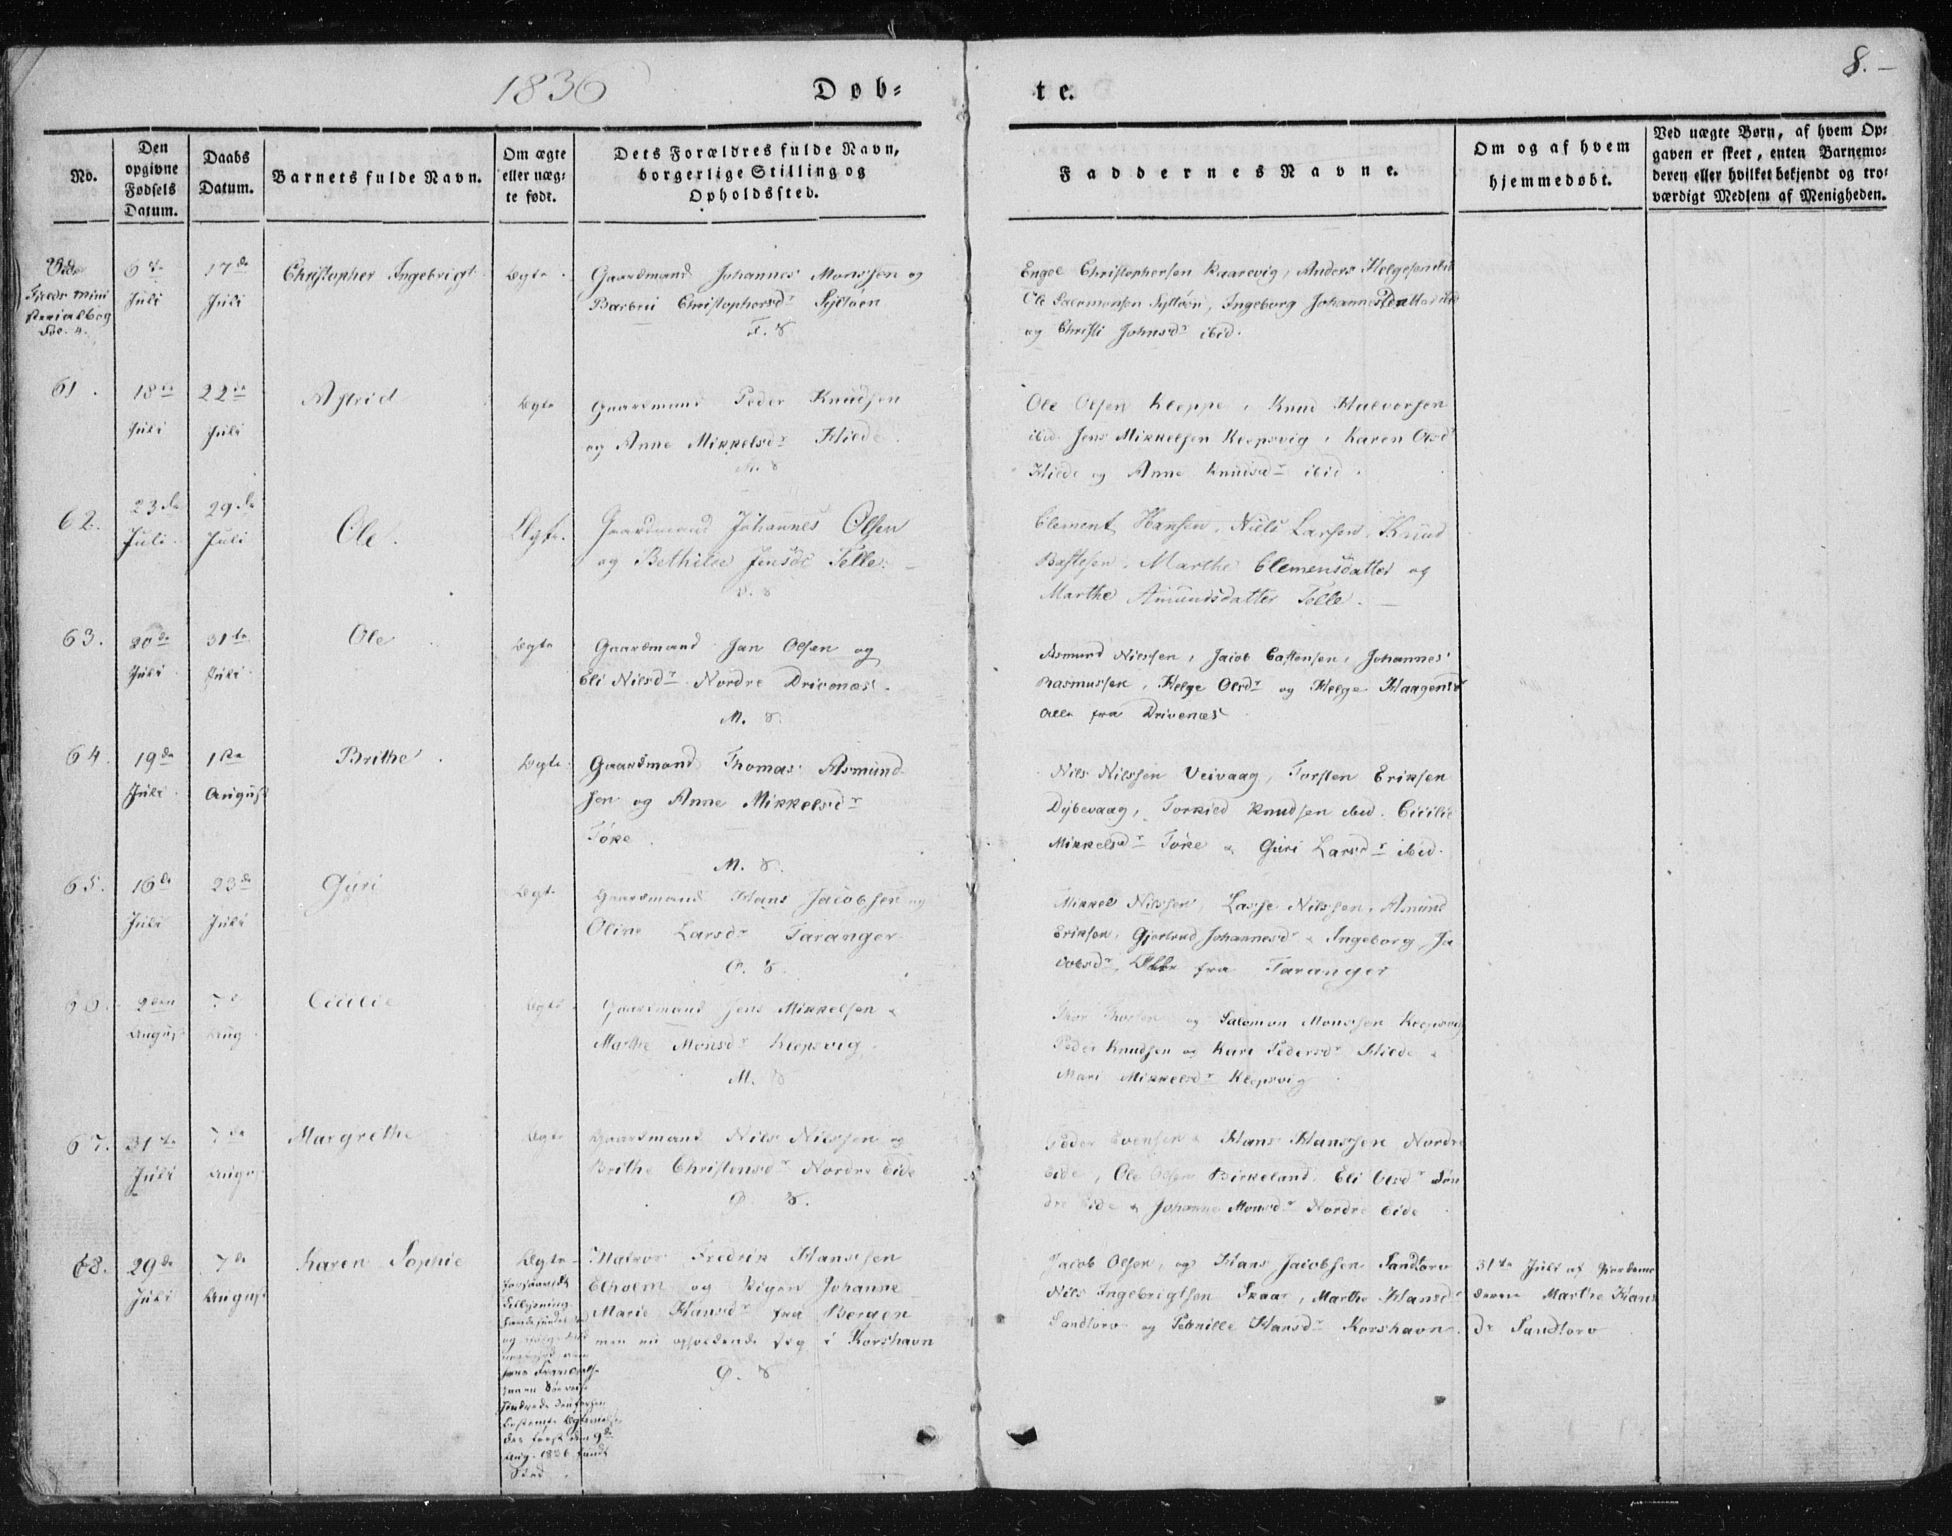 1836
Døb-
te.
8.-
No.
Den
opgivne
Fødsels
Datum.
Daabs
Datum.
Barnets fulde Navn.
Om ægte
eller uæg-
te født.
Dets Forældres fulde Navn,
borgerlige Stilling og
Opholdssted.
Faddernes Navne.
Om og af hvem
hjemmedøbt.
Ved uægte Børn, af hvem Op-
gaven er skeet, enten Barnemo-
deren eller hvilket bekjendt og tro-
værdigt Medlem af Menigheden.
Vide
Fjelds mini
sterialbog
Fol. 4.
6te
Juli
17de
Juli
Christopher Ingebrigt
Ægte
Gaardmand Johannes Monssen og
Barbru Christophersdr
Engel Christophersen Kaarevig, Anders Helgesen
Ole Salomonsen Syltöen, Ingeborg Johannesdatter ibid
og Christi Johnsdr ibid.
61.
18de
Juli
22de
Juli
Astrid
Ægte
Gaardmand Peder Knudsen
og Anne Mikkelsdr Hilde.
Ole Olsen Kleppe, Knud Halvorsen
ibid. Jens Mikkelsen Klepsvig, Karen Olsdr
Hilde og Anne Knudsdr ibid.
62.
23de
Juli
29de
Juli
Ole.
Ægte.
Gaardmand Johannes Olsen
og Bethilde Jensdr Selle.
Clement Hansen, Niels Larsen, Knud
Marthe Clemensdatter og
Marthe Amundsdatter Selle.
63.
20de
Juli
31te
Juli
Ole
Ægte
Gaardmand Jan Olsen og
Eli Nilsdr Nordre Drivenæs.
M. &
Asmund Nilssen, Jacob Castensen, Johannes
Rasmussen, Helge Olsdr og Helge Haagensdr
Alle fra Drivenæs
64.
19de
Juli
1ste
August
Brithe
Ægte
Gaardmand Thomas Asmund
sen og Anne Mikkelsdr
Töke.
M. &
Nils Nilssen Veivaag, Torsten Eriksen
Dybevaag, Torkied Knudsen ibid. Cicilie
Mikkelsdr Töke & Guri Larsdr ibid.
65.
16de
Juli
23de
Juli
Guri
Ægte
Gaardmand Hans Jacobsen og
Oline Larsdr Taranger
Mikkel Nilssen, Lasse Nilssen, Amund
Eriksen, Gjertrud Johannesdr & Ingeborg Ja
cobsdr, Alle fra Taranger
2den
August
7de
Aug.
Cicilie
Ægte
Gaardmand Jens Mikkelsen &
Marthe Monsdr Klepsvig.
M. &
Thor Thorsen og Salomon Monssen Klepsvig
Peder Knudsen og Kari Pedersdr Hilde &
Mari Mikkelsdr Klepsvig
67.
31te
Juli
7de
Augus
Margrethe
Ægte
Gaardmand Nils Nilssen og
Brithe Christensdr Nordre Eide
Peder Evensen & Hans Hanssen Nordre
Eide, Ole Olsen Birkeland, Eli Olsdr Søn
dre Eide & Johanne Monsdr Nordre Eide
68.
29de
Juli
7de
August
Karen Sophie
Ægte
Matros Fredrik Hanssen
Elholm og Pigen Johanne
Marie Hansdr fra Bergen
men nu opholdende sig i Korshavn
Jacob Olsen, og Hans Jacobsen Sandtorv
Nils Ingebrigtsen Skaar, Marthe Hansdr
Sandtorv og Pernille Hansdr Korshavn.
31te Juli af Jordemo
deren Marthe Hans
dr Sandtorv
først den 9de
Aug. 1836 fandt
Sted.